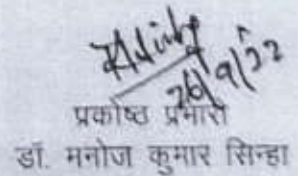 26/9/22
प्रकोष्ठ प्रभारी
डॉ. मनोज कुमार सिन्हा